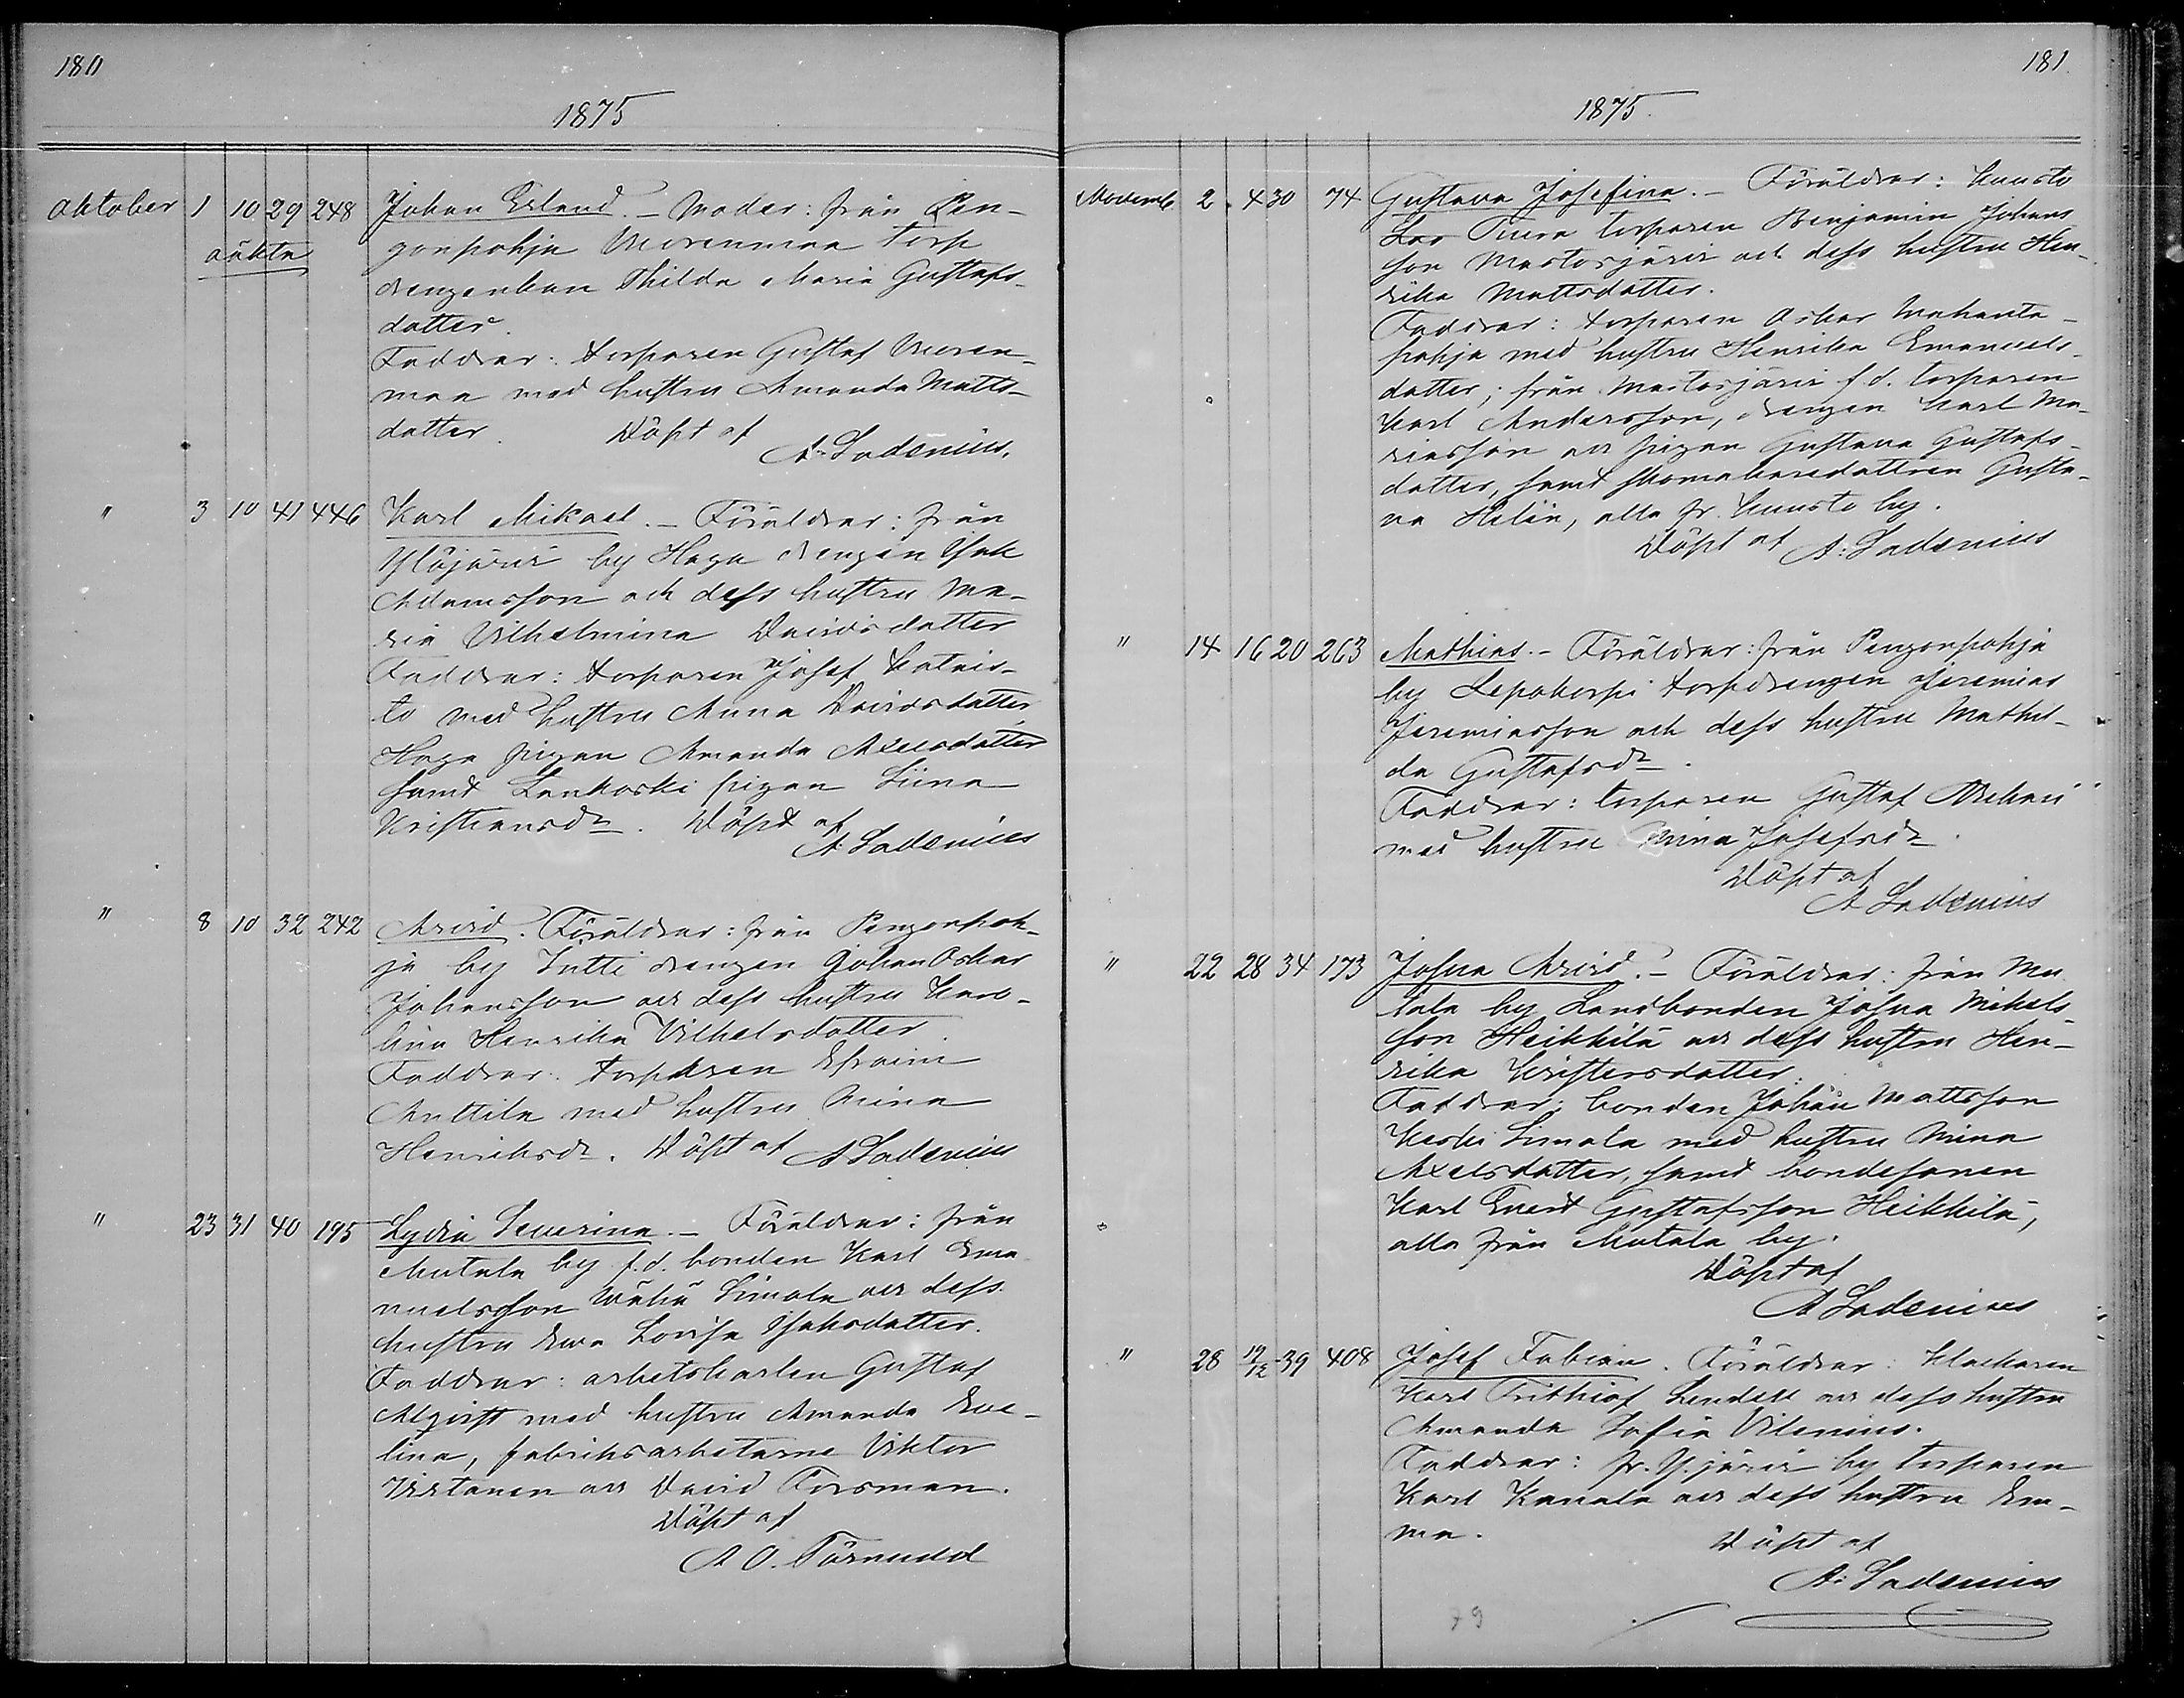 180
1875
Oktober 1 10 29 248 Johan Erland. - Moder: från Pen-
oäkta gonpohja Uorenmaa torp
drengenkan Thilda Maria Gustafs-
dotter.
Faddrar: torparen Gustaf Uoren-
maa med hustru Amanda Matts-
dotter. Döpt af
A. Ladenius.
" 3 10 41 446 Karl Mikael. - Föräldrar: från
Ylöjärvi by Haga drengen Isak
Adamsson och dess hustru Ma-
ria Vilhelmina Davidsdotter
Faddrar: torparen Josef
to med hustru Anna Davidsdotter,
Haga pigan Amanda Axelsdotter
samt Lankoski pigan Siina
Kristiansdr. Döpt af
A. Ladenius
" 8 10 32 242 Arvid. Föräldrar: från Pengonpoh-
ja by drengen Johan Oskar
Johansson och dess hustru Karo-
lina Henrika Vilhelmsdotter.
Faddrar: torparen Efraim
Anttila med hustru Mina
Henriksdr. Döpt af A Ladenius
" 23 31 40 195 Lydia Severina. - Föräldrar: från
Mutala by f.d. bonden Karl Ema
nuelsson Wähä Simola och dess
hustru Eva Lovisa Isaksdotter.
Faddrar: arbetskarlen Gustaf
med hustru Amanda Eve-
lina, fabriksarbetarne Viktor
Virtanen och David Forsman.
Döpt af
A O. Törnudd
181.
1875.
Novemb. 2. 4 30 74 Gustava Josefina. - Föräldrar: Kuusto
torparen Benjamin Johans
son Mastosjärvi och dess hustru Hen-
rika Mattsdotter.
Faddrar: torparen Oskar Mahanta-
pohja med hustru Henrika Emanuels-
dotter; från Mastosjärvi f.d. torparen
Karl Andersson, drengen Karl Ma-
riasson och pigan Gustava Gustafs-
dotter, samt skomakaredottren Gusta-
va Helin, alla fr. Kuusto by.
Döpt af A. Ladenius
" 14 16 20 263 Mathias. - Föräldrar: från Pengonpohja
by Lepokorpi torpdrengen Jeremias
Jeremiasson och dess hustru Mathil-
da Gustafsdr.
Faddrar: torparen Gustaf
med hustru Mina Josefsdr.
Döpt af
A Ladenius
" 22 28 34 173 Josua Arvid. - Föräldrar: från Mu
tala by Landbonden Josua Mikels-
son Heikkilä och dess hustru Hen-
rika Kristersdotter.
Faddrar: bonden Johan Mattsson
Keski Simola med hustru Mina
Axelsdotter, samt bondesonen
Karl Evert Gustafsson Heikkilä,
alla från Mutala by.
Döpt af
A Ladenius
" 28 19/12 39 408 Josef Fabian. Föräldrar: klockaren
Karl Frithiof Lindell och dess hustru
Amanda Sofia Vilenius.
Faddrar: fr. Y.järvi by torparen
Karl Kanala och dess hustru Em-
ma. Döpt af
A. Ladenius
79